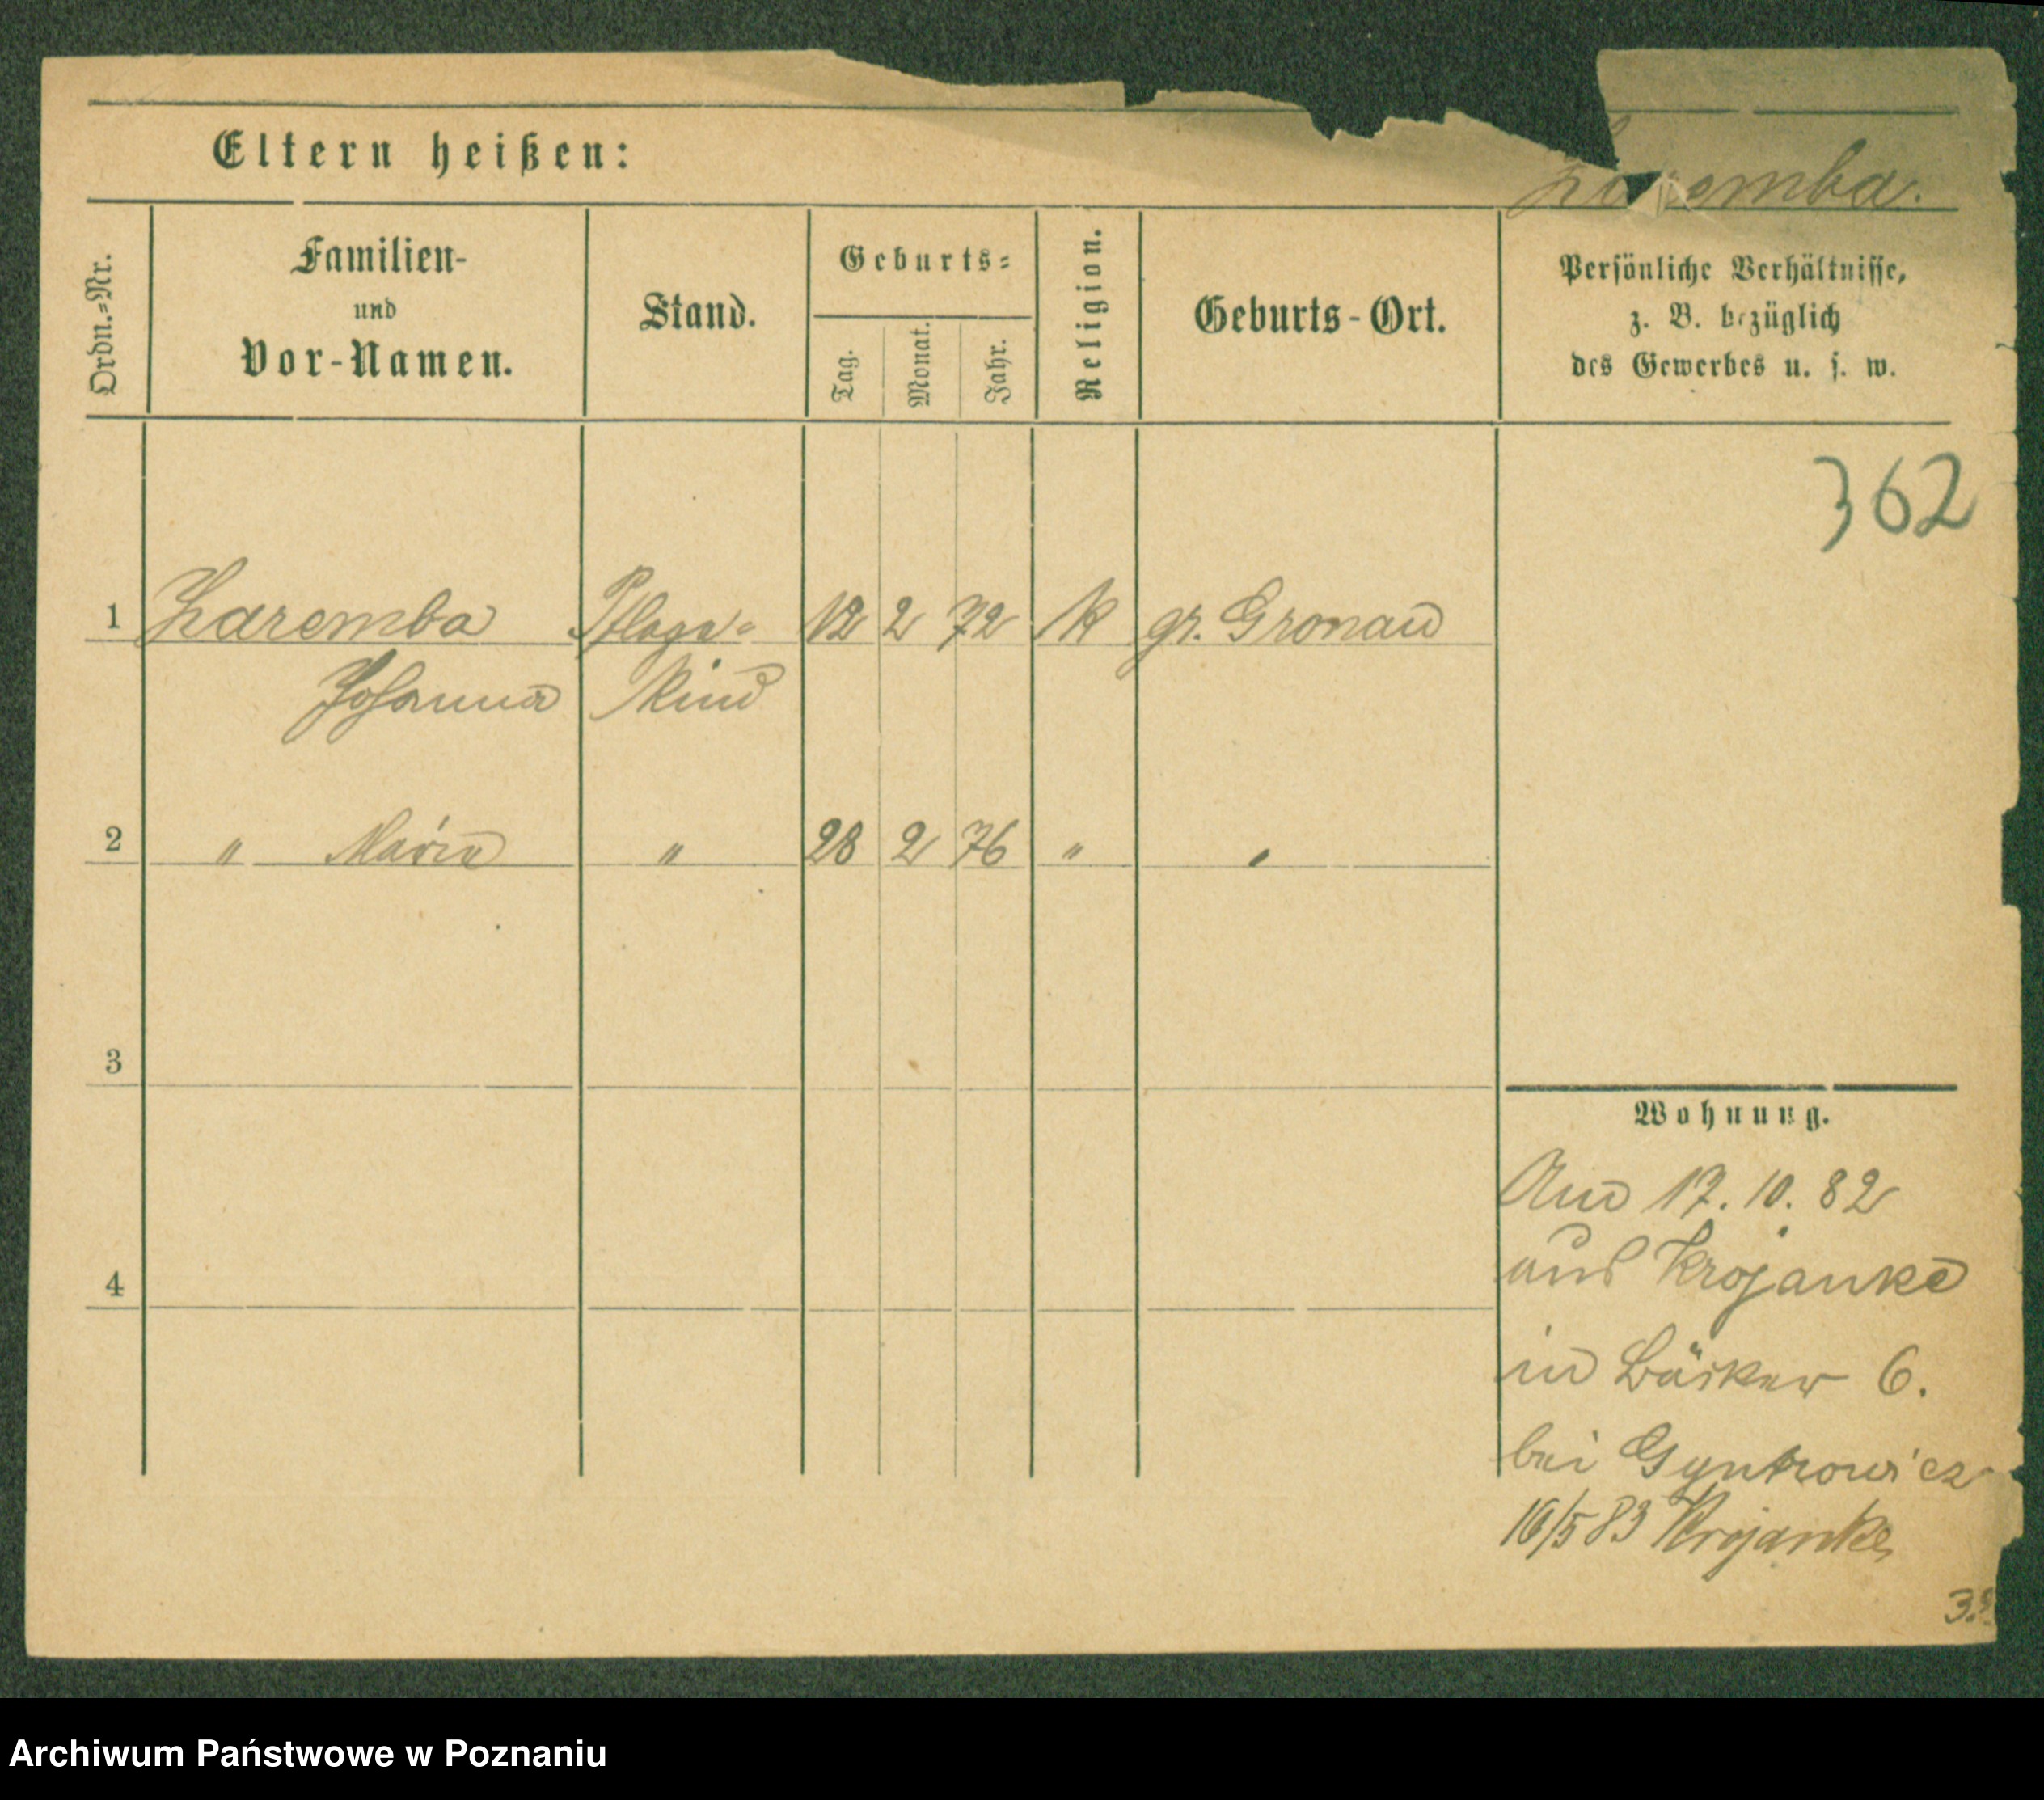 Eltern heißen:
Zaremba.
Ordn.=Nr.
Familien-
und
Vor-Namen.
Stand.
Geburts=
Tag.
Monat.
Jahr.
Religion.
Geburts-Ort.
Persönliche Verhältnisse,
z. B. bezüglich
des Gewerbes u. s. w.
362
1 Zaremba Pflege= 12 2 72 k gr. Gronau
Johanna Kind
2 " Maria " 28 2 76 " "
3
Wohnung.
17. 10. 82
aus Krojanke
4
in Bäcker 6.
bei
16/5 83 Krojanke
Archiwum Państwowe w Poznaniu